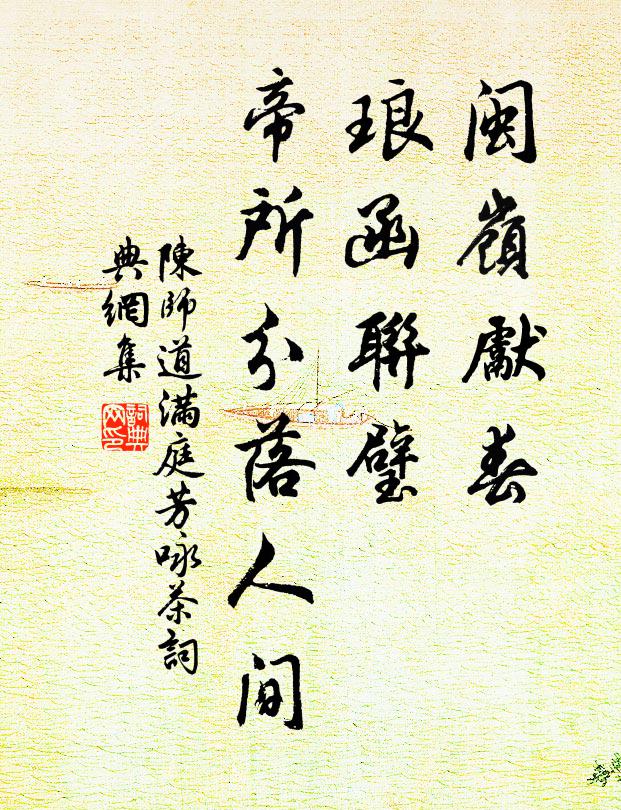 閩嶺獻春
琅函聯璧
帝所分落人間
陳師道滿庭芳咏茶詞
典網集
詞典
网印